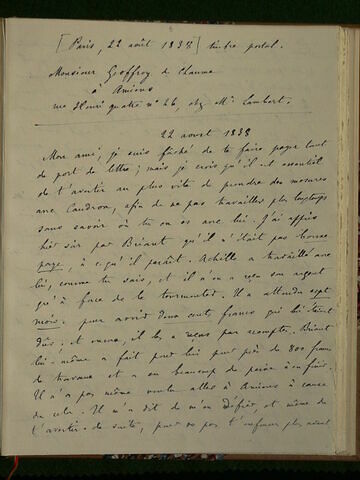 [Paris, 22 août 1838] timbre postal.
Monsieur Geoffroy de Chaume
à Amiens
rue Henri quatre n° 26, chez Mr Lambert.
22 aout 1838
Mon ami, je suis fâché de te faire payer tant
de port de lettres ; mais je crois qu'il est essentiel
de t'avertir au plus vite de prendre des mesures
avec Caudron, afin de ne pas travailler plus longtemps
sans savoir où tu en es avec lui. J'ai appris
hier soir par Briant qu'il n'était pas bonne
paye, à ce qu'il paraît. Achille a travaillé avec
lui, comme tu sais, et il n'a reçu son argent
qu'à force de le tourmenter. Il a attendu sept
mois pour avoir deux cent francs qui lui étaient
dûs ; et encore, il les a reçus par acompte. Briant
lui-même a fait pour lui pour près de 800 francs
de travaux et a eu beaucoup de peine à en finir.
Il n'a pas même voulu aller à Amiens à cause
de cela. Il m'a dit de m'en défier, et même de
t'avertir de suite, pour ne pas t'enfoncer plus avant